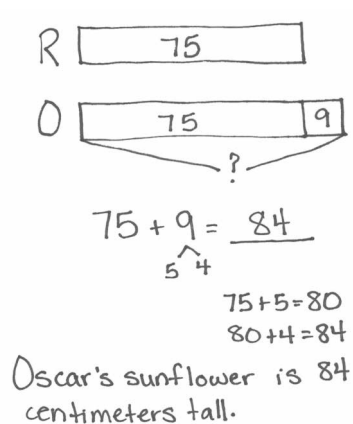 R 75
O 75 9
?
75 + 9 = 84
5 4
75+5=80
80+4=84
Oscar's sunflower is 84
centimeters tall.